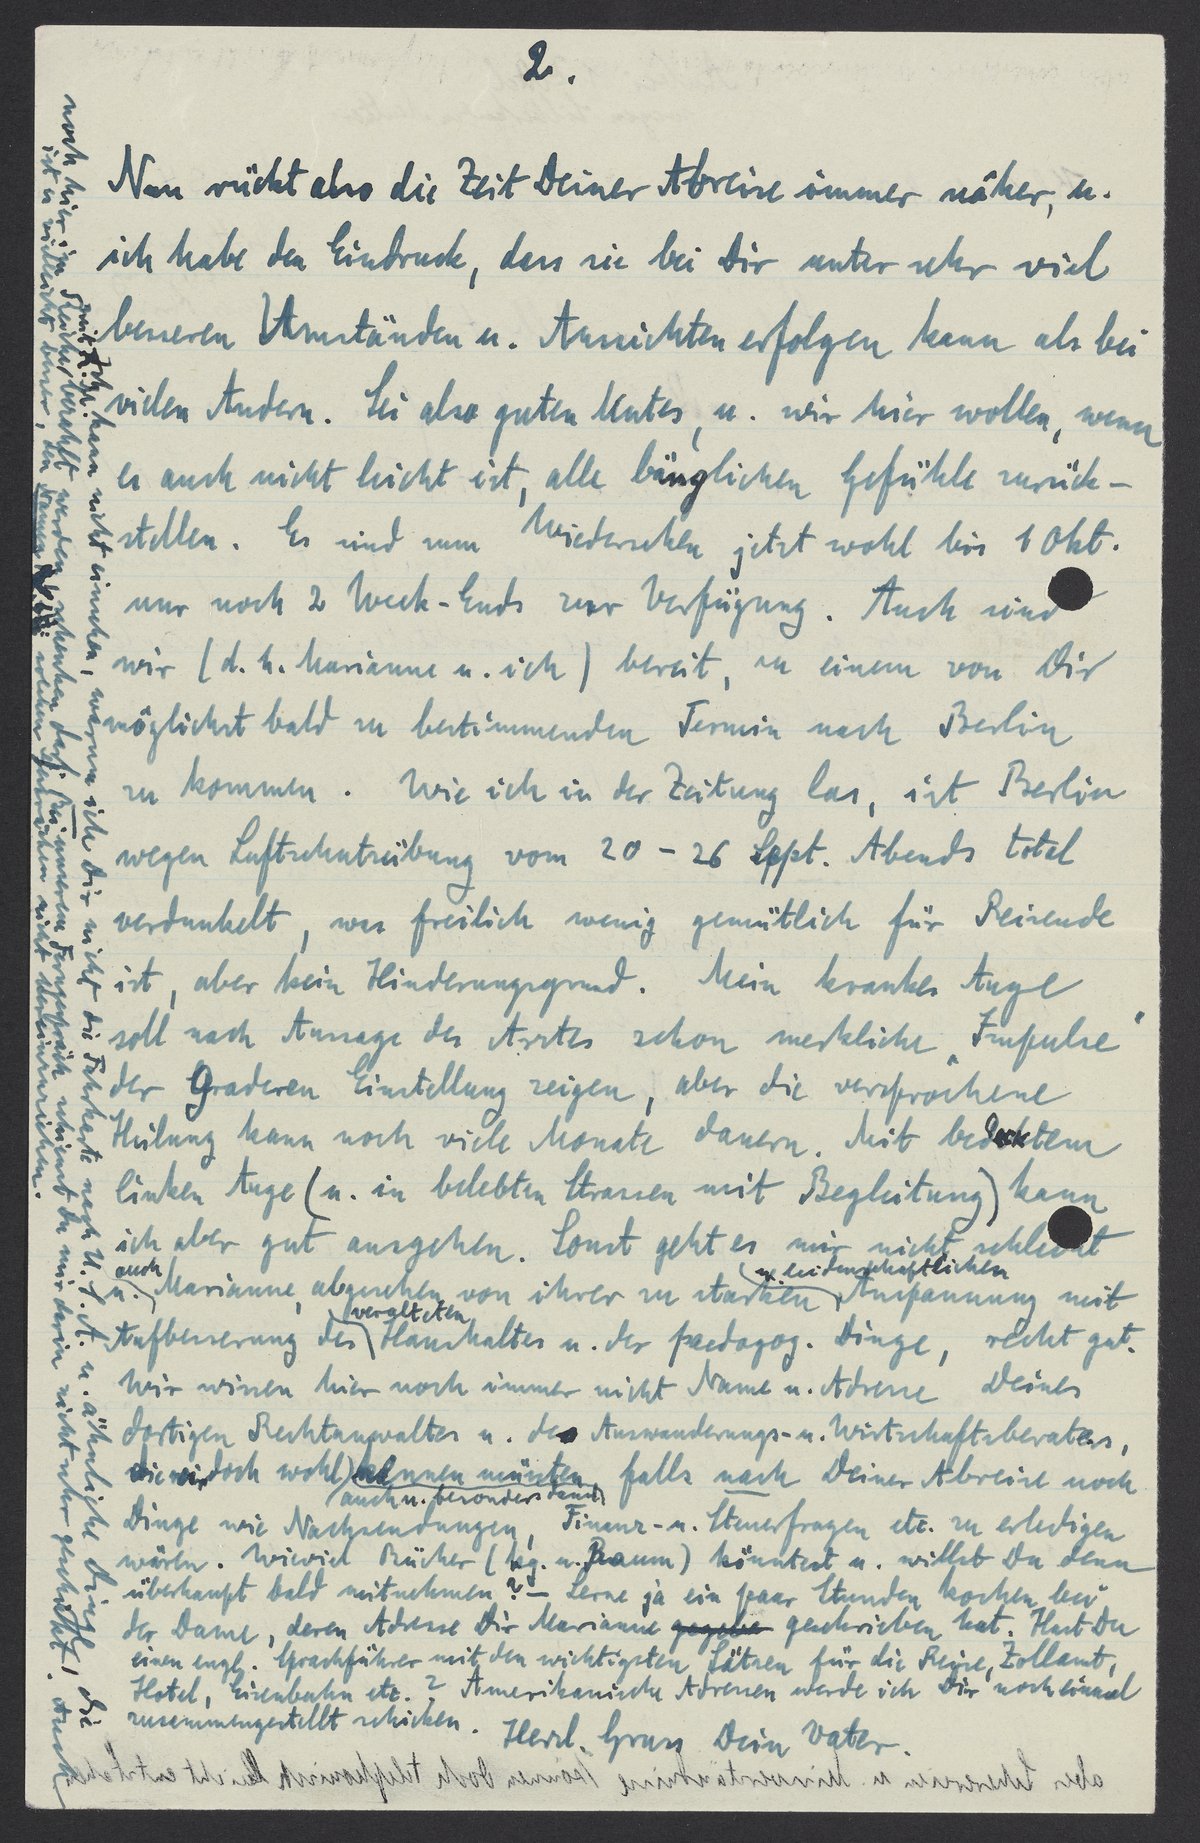 2.
Nun rückt also die Zeit Deiner Abreise immer näher, u.
ich habe den Eindruck, dass sie bei Dir unter sehr viel
besseren Umständen u. Aussichten erfolgen kann als bei
vielen Andern. Sei also guten Mutes, u. wir hier wollen, wenn
es auch nicht leicht ist, alle bänglichen Gefühle zurück-
stellen. Es sind zum Wiedersehen jetzt wohl bis 1 Okt.
nur noch 2 Week-Ends zur Verfügung. Auch sind
wir (d. h. Marianne u. ich) bereit, zu einem von Dir
möglichst bald zu bestimmenden Termin nach Berlin
zu kommen. Wie ich in der Zeitung las, ist Berlin
wegen Luftschutzübung vom 20 - 26 Sept. Abends total
verdunkelt, was freilich wenig gemütlich für Reisende
ist, aber kein Hinderungsgrund. Mein krankes Auge
soll nach Aussage des Arztes schon merkliche „Impulse"
der Graderen Einstellung zeigen, aber die versprochene
Heilung kann noch viele Monate dauern. Mit bedecktem
linken Auge (u. in belebten Strassen mit Begleitung) kann
ich aber gut ausgehen. Sonst geht es mir nicht schlecht
u. auch Marianne, abgesehen von ihrer zu starken u. leidenschaftlichen Anspannung mit
Aufbesserung des veralteten Haushaltes u. der paedagog. Dinge, recht gut.
Wir wissen hier noch immer nicht Name u. Adresse Deines
dortigen Rechtanwaltes u. des Auswanderungs- u. Wirtschaftsberaters,
die wir doch wohl kennen müssten, falls nach Deiner Abreise noch
auch u. besonders dann
Dinge wie Nachsendungen, Finanz- u. Steuerfragen etc. zu erledigen
wären. Wieviel Bücher (kg. u. Raum) könntest u. willst Du denn
überhaupt bald mitnehmen? – Lerne ja ein paar Stunden kochen bei
der Dame, deren Adresse Dir Marianne gegeben geschrieben hat. Hast Du
einen engl. Sprachführer mit den wichtigsten Sätzen für die Reise, Zollamt,
Hotel, Eisenbahn etc.? Amerikanische Adressen werde ich Dir noch einmal
zusammengestellt schicken.
Herzl. Gruss Dein Vater.
Ich kann nicht einsehen, warum ich Dir nicht die Fahrkarte nach U.S.A. u. ähnliche Dinge, die
noch hier, im Reich bezahlt werden, schenken darf. Bei unserem Ferngespräch schienst Du mir darin nicht sicher. Auch
ist es vielleicht besser, den Namen in solchen Gesprächen nicht hereinzuziehen.